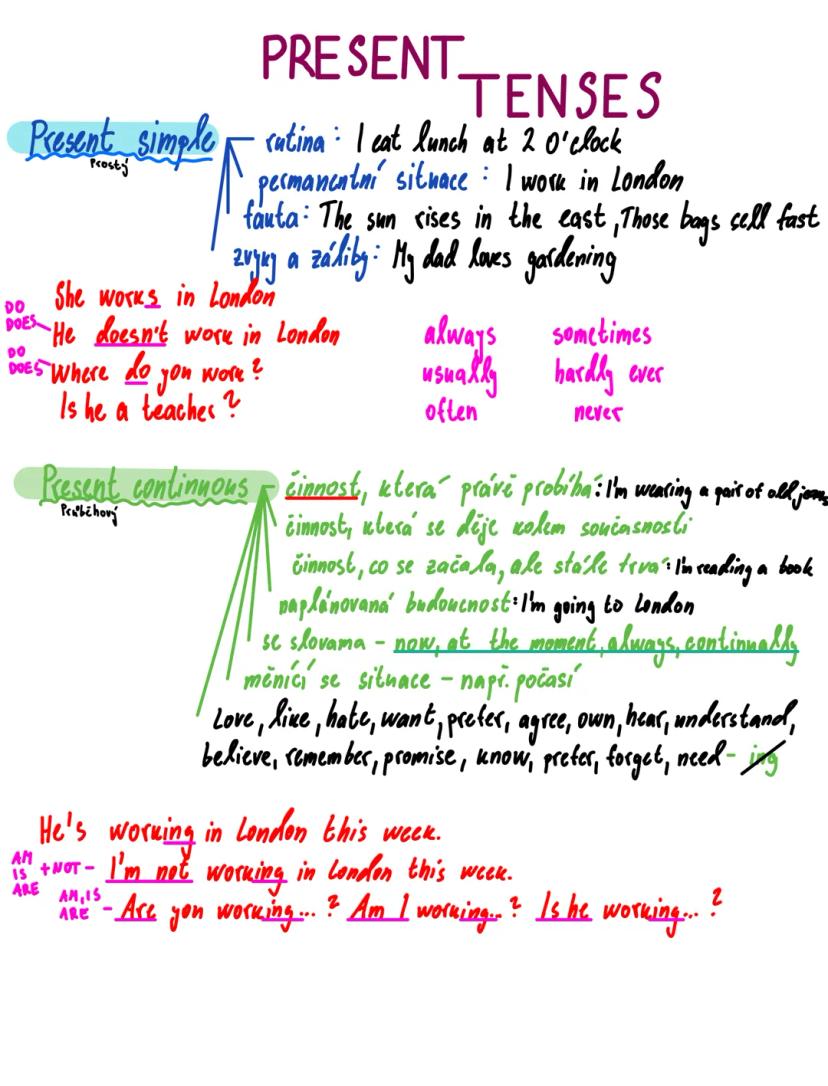 PRESENT
TENSES
Present simple
Prostý
rutina: I eat lunch at 2 o'clock
permanentní situace: I work in London
fakta: The sun rises in the east, Those bags sell fast
zvyky a záliby: My dad loves gardening
She works in London
DO
DOES
He doesn't work in London
DO
DOES
Where do you work?
Is he a teacher?
always sometimes
usually hardly ever
often never
Present continuous
Průběhový
činnost, která právě probíhá: I'm wearing a pair of old jeans
činnost, která se děje kolem současnosti
činnost, co se začala, ale stále trvá: I'm reading a book
naplánovaná budoucnost: I'm going to London
se slovama - now, at the moment, always, continually
měníčí se situace - např. počasí
Love, like, hate, want, prefer, agree, own, hear, understand,
believe, remember, promise, know, prefer, forget, need - ing
He's working in London this week.
AM
IS
ARE
+NOT - I'm not working in London this week.
AM, IS
ARE
- Are you working...? Am I working...? Is he working...?